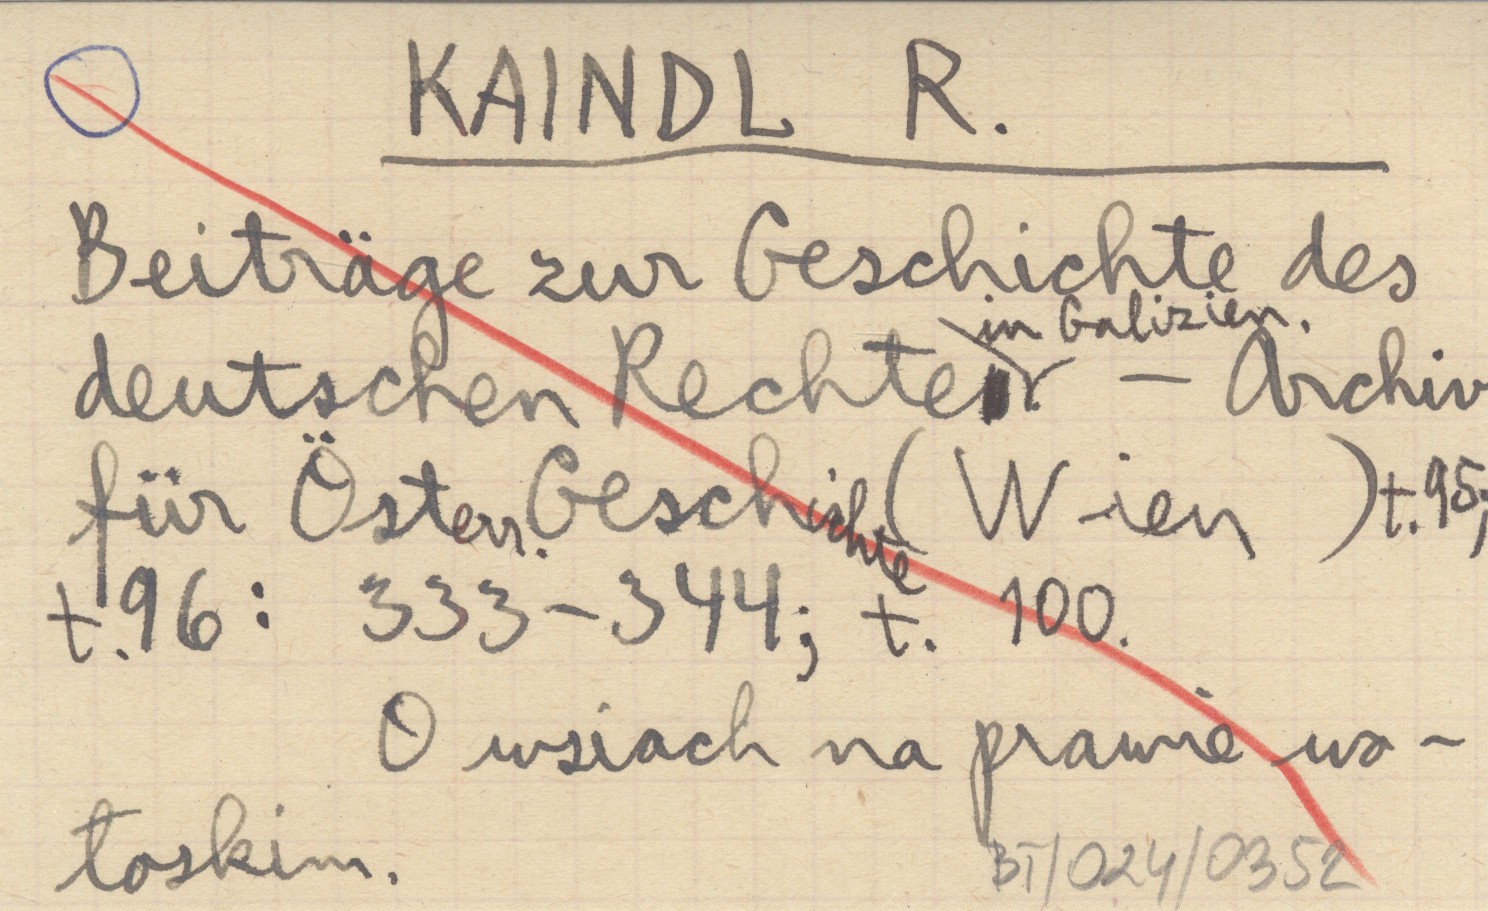 KAINDL R.
Beiträge zur Geschichte des
in Galizien.
deutschen Rechter – Archiv
für Österr. Geschichte (Wien) t.95;
t.96: 333–344; t. 100.
O wsiach na prawie wo-
łoskim.
BT/024/0352